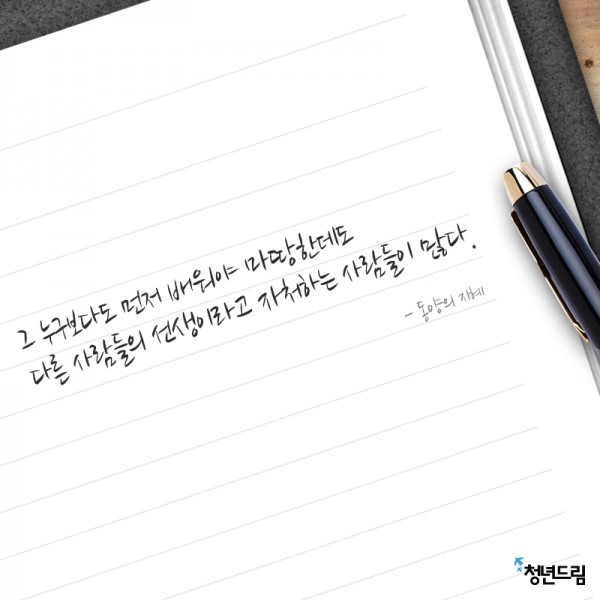 그 누구보다도 먼저 배워야 마땅한데도
다른 사람들의 선생이라고 자처하는 사람들이 많다.
- 동양의 지혜
청년드림